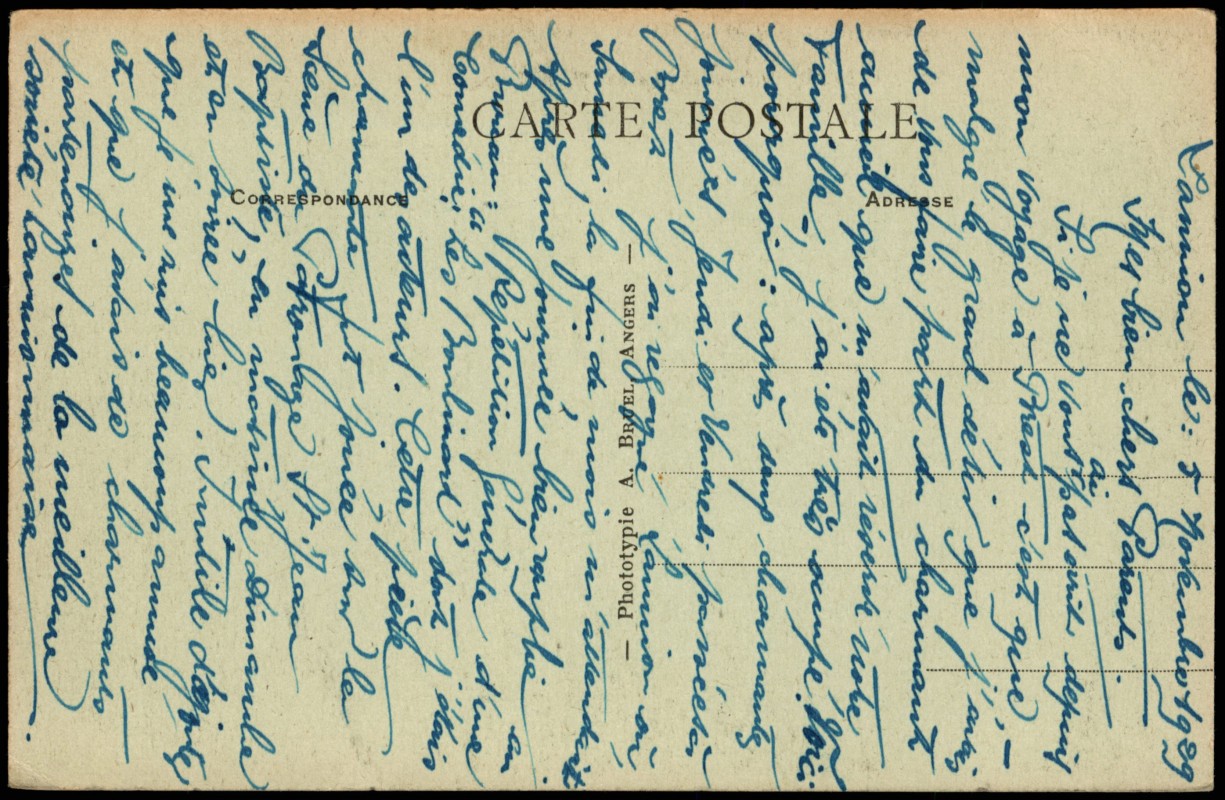 CARTE POSTALE
CORRESPONDANCE
ADRESSE
— Phototypie A. BRUEL, ANGERS —
Lannion le: 5 Novembre 1929
bien chers Parents
Si je ne vous pas écrit depuis
ai
mon voyage à Brest c'est que,
malgré le grand désir que j'avais
de vous faire part du charmant
accueil que m'avait réservé notre
Famille, j'ai été très occupé. Voici
pourquoi: après deux charmantes
journées Jeudi et Vendredi passées à
Brest, j'ai regagné Lannion où
Samedi, la fin de mois m'attendait
Après une journée bien remplie, en
Répétition Générale d'une
Comédie "Les Boulinard" dont j'étais
l'un des acteurs. Cette pièce
charmante fut jouée sur la
Scène du Patronage St Jean
Baptiste, en matinée Dimanche
et en soirée hier. Inutile d'ajouter
que je me suis beaucoup amusé
et que j'avais de charmants
partenaires de la meilleure
société lannionnaise.